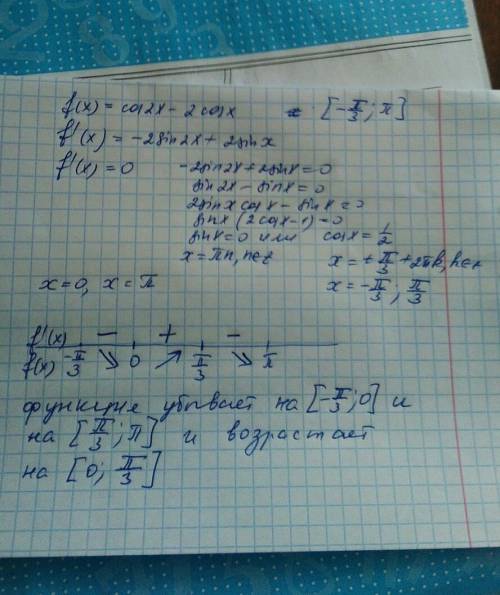 f(x) = cos2x - 2cosx [-π/3; π]
f'(x) = -2sin2x + 2sinx
f'(x) = 0 -2sin2x + 2sinx = 0
sin2x - sinx = 0
2sinx cosx - sinx = 0
sinx (2cosx - 1) = 0
sinx = 0 или cosx = 1/2
x = πn, n∈z x = ±π/3 + 2πk, k∈z
x = 0, x = π x = -π/3; π/3
f'(x) - + -
f(x) -π/3 ↘ 0 ↗ π/3 ↘ π
функция убывает на [-π/3; 0] и
на [π/3; π] и возрастает
на [0; π/3]